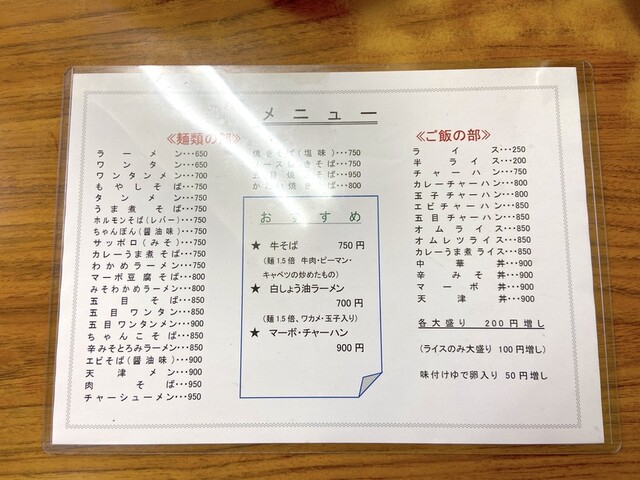 メニュー
≪麺類の部≫
ラーメン･･･650
ワンタン･･･650
ワンタンメン･･･700
もやしそば･･･750
タンメン･･･750
うま煮そば･･･750
ホルモンそば(レバー)･･･750
ちゃんぽん(醤油味)･･･750
サッポロ(みそ)･･･750
カレーうま煮そば･･･750
わかめラーメン･･･750
マーボ豆腐そば･･･800
みそわかめラーメン･･･800
五目そば･･･850
五目ワンタン･･･850
五目ワンタンメン･･･900
ちゃんこそば･･･900
辛みそとろみラーメン･･･850
エビそば(醤油味)･･･900
天津メン･･･900
肉そば･･･950
チャーシューメン･･･950
焼きそば(塩味)･･･750
ソース焼きそば･･･750
五目焼きそば･･･950
かた焼きそば･･･800
おすすめ
★ 牛そば 750円
(麺1.5倍 牛肉・ピーマン・
キャベツの炒めたもの)
★ 白しょう油ラーメン
700円
(麺1.5倍、ワカメ・玉子入り)
★ マーボ・チャーハン
900円
≪ご飯の部≫
ライス･･･250
半ライス･･･200
チャーハン･･･750
カレーチャーハン･･･800
玉子チャーハン･･･800
エビチャーハン･･･850
五目チャーハン･･･850
オムライス･･･850
オムレツライス･･･850
カレーうま煮ライス･･･850
中華丼･･･850
辛みそ丼･･･850
マーボ丼･･･850
天津丼･･･850
各大盛り 200円増し
(ライスのみ大盛り 100円増し)
味付けゆで卵入り 50円増し